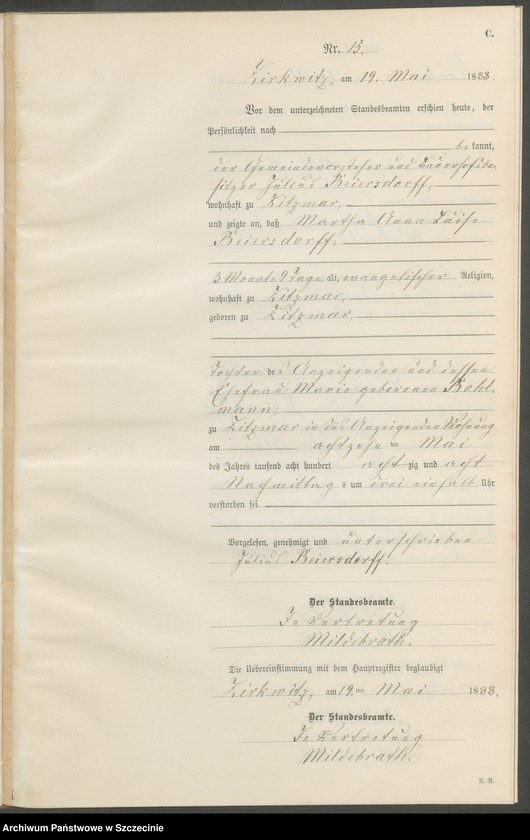 C.
Nr. 13.
Zirkwitz, am 19. Mai 1888.
Vor dem unterzeichneten Standesbeamten erschien heute, der
Persönlichkeit nach
be kannt,
der Gemeindevorsteher und Bauerhofsbe-
sitzer Julius Beiersdorff,
wohnhaft zu Zitzmar,
und zeigte an, daß Martha Anna Luise
Beiersdorff,
3 Monate 9 Tage alt, evangelischer Religion,
wohnhaft zu Zitzmar,
geboren zu Zitzmar
Tochter des Anzeigenden und dessen
Ehefrau Marie geborenen Bohl-
mann,
zu Zitzmar in des Anzeigenden Wohnung
am achtzehn ten Mai
des Jahres tausend acht hundert acht zig und acht
Nachmittag s um drei einhalb Uhr
verstorben sei.
Vorgelesen, genehmigt und unterschrieben
Julius Beiersdorff.
Der Standesbeamte.
In Vertretung
Mildebrath.
Die Uebereinstimmung mit dem Hauptregister beglaubigt
Zirkwitz, am 19. ten Mai 1888.
Der Standesbeamte.
In Vertretung
Mildebrath.
R.-R.
Archiwum Państwowe w Szczecinie